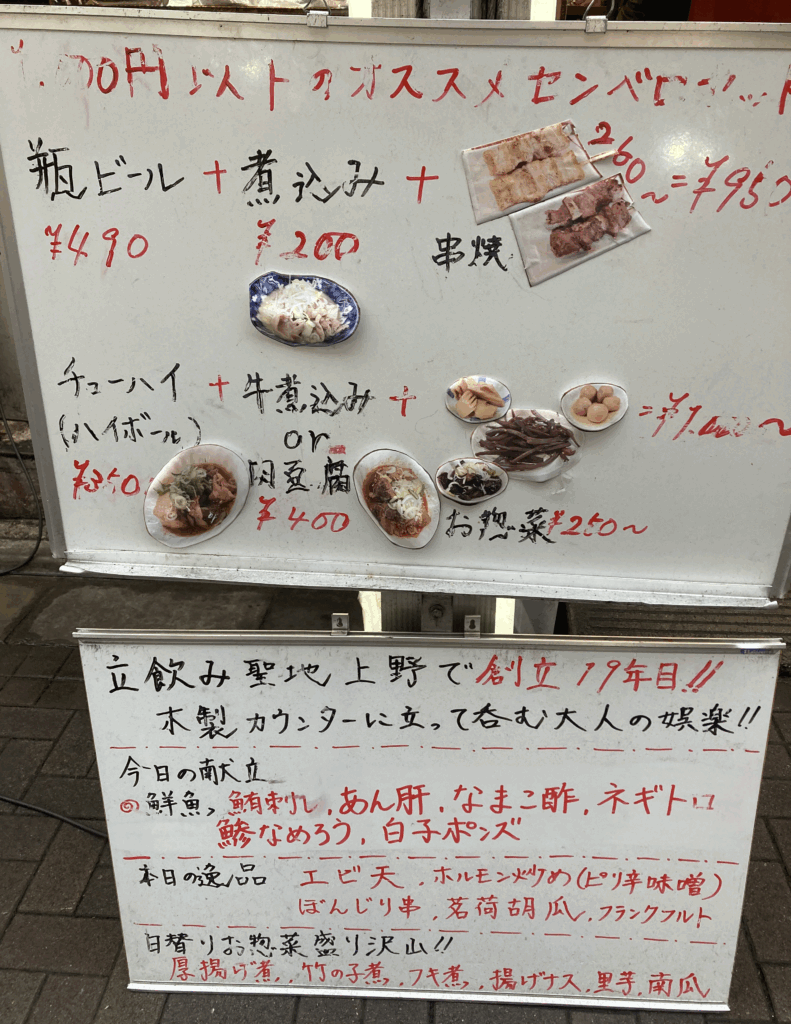 00円以下のオススメセンベロセット
瓶ビール + 煮込み + 260〜 = ¥950
¥490 ¥200 串焼
チューハイ + 牛煮込み + = ¥1,000〜
(ハイボール) or
¥350 肉豆腐
¥400 お惣菜 ¥250〜
立飲み聖地上野で創立19年目!!
木製カウンターに立って呑む大人の娯楽!!
今日の献立
◎鮮魚、鮪刺し、あん肝、なまこ酢、ネギトロ
鯵なめろう、白子ポンズ
本日の逸品 エビ天、ホルモン炒め(ピリ辛味噌)
ぼんじり串、茗荷胡瓜、フランクフルト
日替りお惣菜盛り沢山!!
厚揚げ煮、竹の子煮、フキ煮、揚げナス、里芋、南瓜